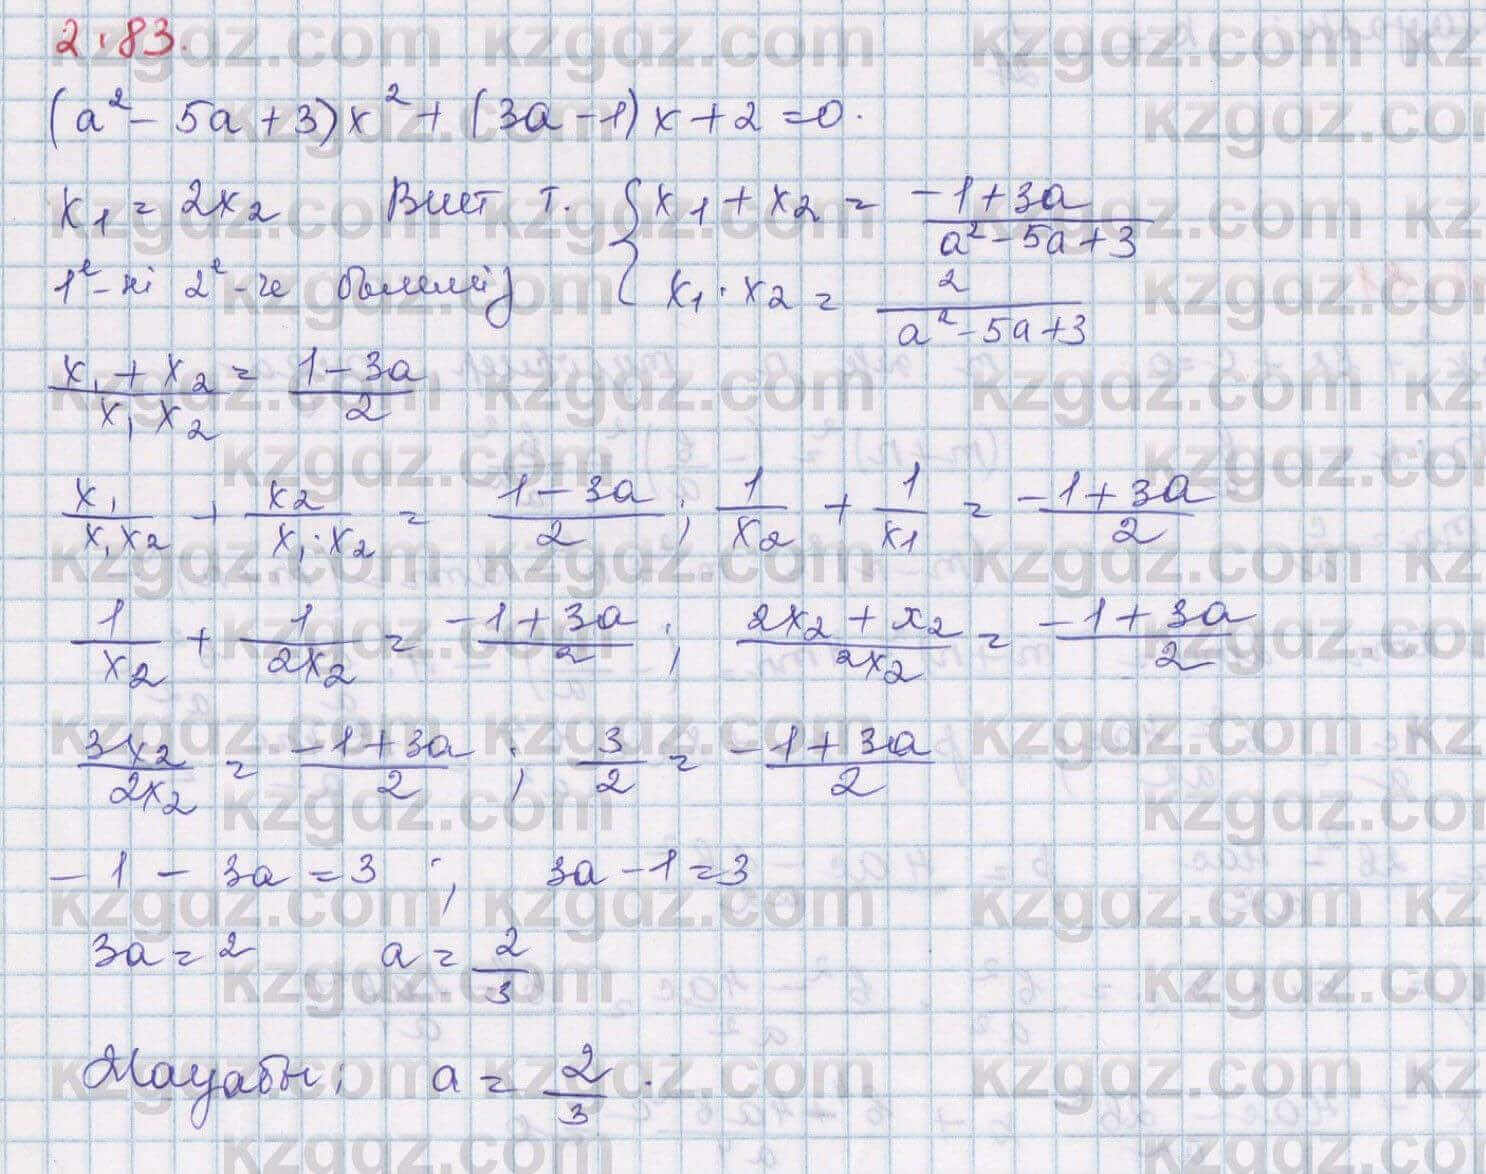 2.83.
(a² - 5a + 3)x² + (3a - 1)x + 2 = 0.
x₁ = 2x₂ Виет т. { x₁ + x₂ = (-1 + 3a)/(a² - 5a + 3)
1² - ні 2² - ге бөлеміз x₁ · x₂ = 2/(a² - 5a + 3)
(x₁ + x₂)/(x₁ x₂) = (1 - 3a)/2
x₁/(x₁x₂) + x₂/(x₁·x₂) = (1 - 3a)/2 ; 1/x₂ + 1/x₁ = (-1 + 3a)/2
1/x₂ + 1/(2x₂) = (-1 + 3a)/2 ; (2x₂ + x₂)/(2x₂) = (-1 + 3a)/2
3x₂/(2x₂) = (-1 + 3a)/2 ; 3/2 = (-1 + 3a)/2
-1 - 3a = 3 ; 3a - 1 = 3
3a = 2 a = 2/3
Жауабы: a = 2/3.
kzgdz.com